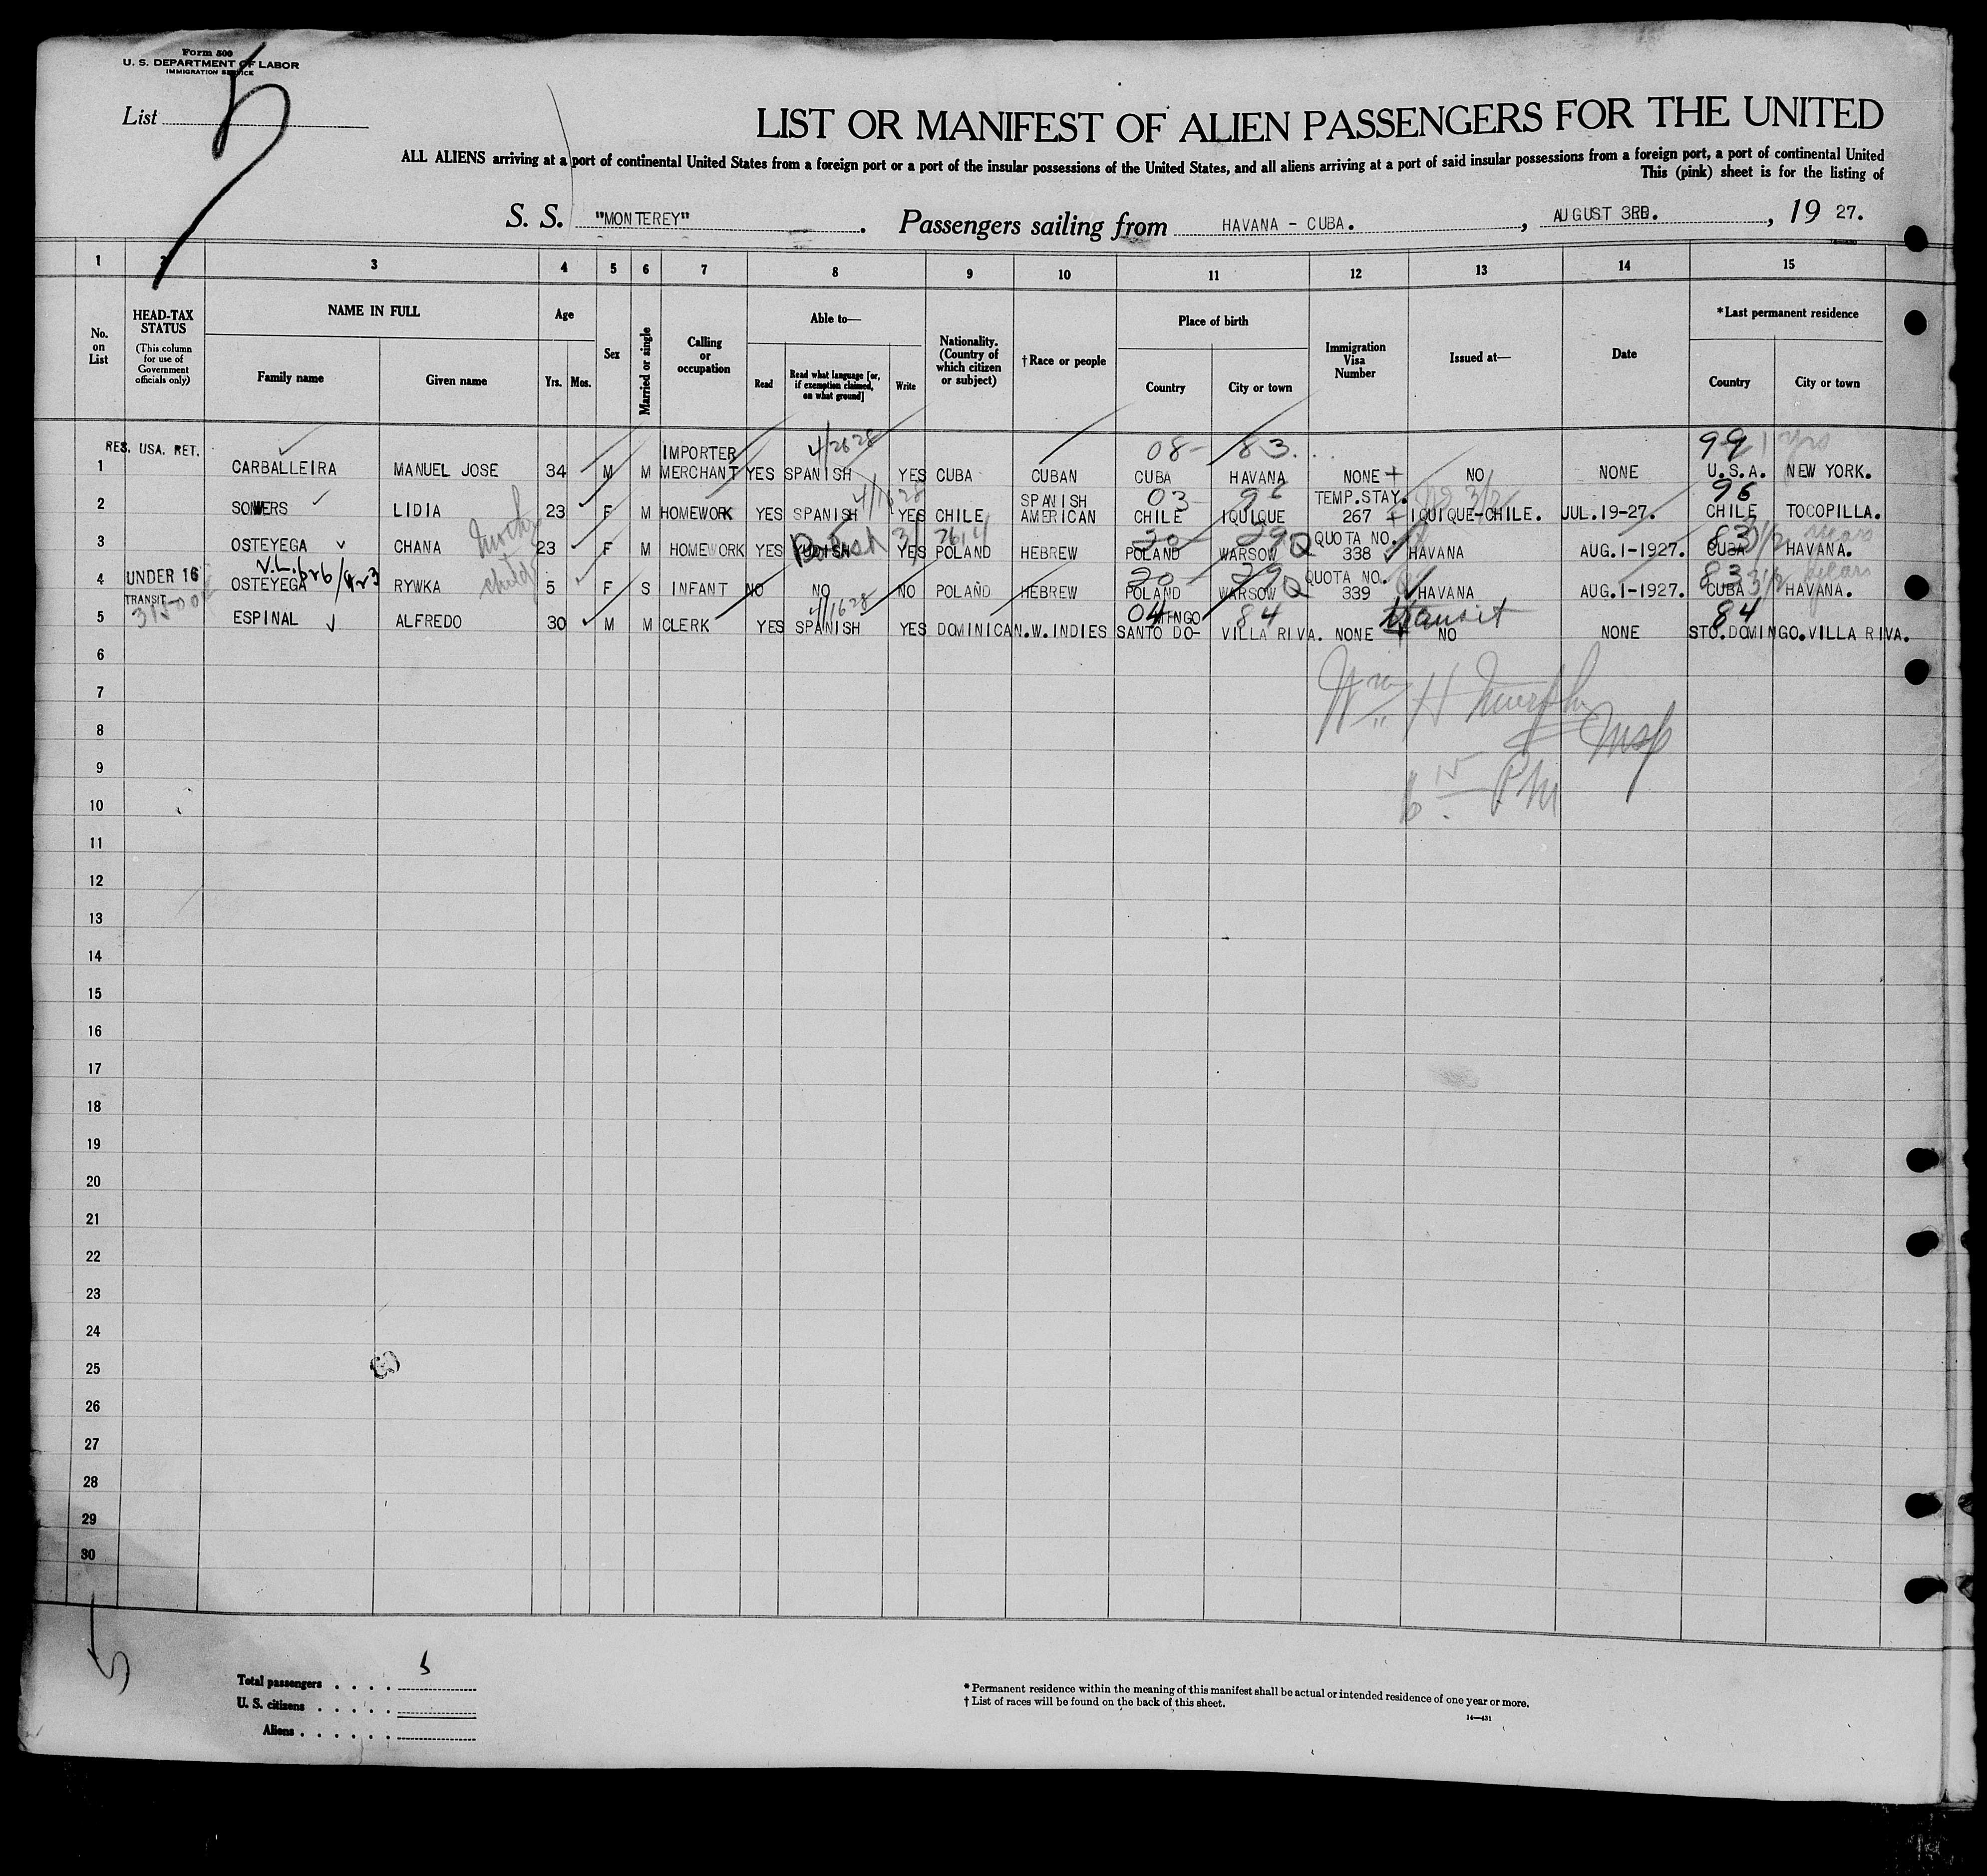 Form 500
U. S. DEPARTMENT OF LABOR
IMMIGRATION SERVICE
List 5
LIST OR MANIFEST OF ALIEN PASSENGERS FOR THE UNITED
ALL ALIENS arriving at a port of continental United States from a foreign port or a port of the insular possessions of the United States, and all aliens arriving at a port of said insular possessions from a foreign port, a port of continental United
This (pink) sheet is for the listing of
S. S. "MONTEREY" . Passengers sailing from HAVANA - CUBA. , AUGUST 3RD. , 19 27.
1 2 3 4 5 6 7 8 9 10 11 12 13 14 15
No. on List
HEAD-TAX STATUS (This column for use of Government officials only)
NAME IN FULL
Family name Given name
Age
Yrs. Mos.
Sex
Married or single
Calling or occupation
Able to—
Read Read what language [or, if exemption claimed, on what ground] Write
Nationality. (Country of which citizen or subject)
†Race or people
Place of birth
Country City or town
Immigration Visa Number
Issued at—
Date
*Last permanent residence
Country City or town
RES. USA. RET. IMPORTER 4/2628 08- 83. 99 1 yrs
1 CARBALLEIRA MANUEL JOSE 34 M M MERCHANT YES SPANISH YES CUBA CUBAN CUBA HAVANA NONE + NO NONE U.S.A. NEW YORK.
4/1628 SPANISH 03 96 TEMP.STAY. 96
2 SOMERS LIDIA 23 F M HOMEWORK YES SPANISH YES CHILE AMERICAN CHILE IQUIQUE 267 + IQUIQUE-CHILE. JUL.19-27. CHILE TOCOPILLA.
Polish 20 29 Q QUOTA NO. 83 3 1/2 years
3 OSTEYEGA CHANA 23 F M HOMEWORK YES YES POLAND HEBREW POLAND WARSOW 338 HAVANA AUG.1-1927. CUBA HAVANA.
UNDER 16 child 20 29 Q QUOTA NO. 83 3 1/2 years
4 OSTEYEGA RYWKA 5 F S INFANT NO NO NO POLAND HEBREW POLAND WARSOW 339 HAVANA AUG.1-1927. CUBA HAVANA.
TRANSIT 4/1628 04 MINGO 84 transit 84
5 ESPINAL ALFREDO 30 M M CLERK YES SPANISH YES DOMINICAN.W.INDIES SANTO DO- VILLA RIVA. NONE + NO NONE STO.DOMINGO.VILLA RIVA.
6
7
Wm H Murphy
8
Insp
9
6 15 PM
10
11
12
13
14
15
16
17
18
19
20
21
22
23
24
25
26
27
28
29
30
5
Total passengers . . . . 5
U. S. citizens . . . . .
Aliens . . . . . .
* Permanent residence within the meaning of this manifest shall be actual or intended residence of one year or more.
† List of races will be found on the back of this sheet.
14—431